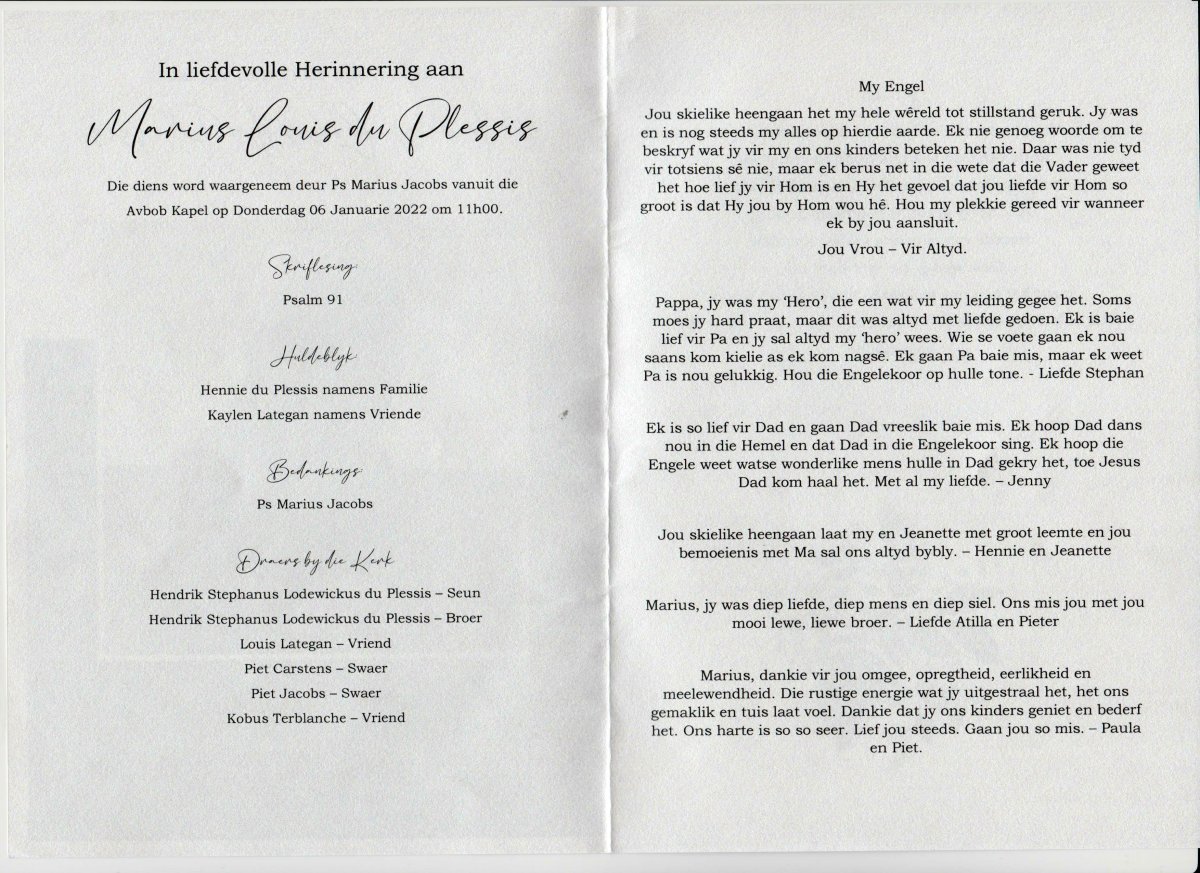 In liefdevolle Herinnering aan
Marius Louis du Plessis
Die diens word waargeneem deur Ps Marius Jacobs vanuit die
Avbob Kapel op Donderdag 06 Januarie 2022 om 11h00.
Skriflesing:
Psalm 91
Huldeblyk:
Hennie du Plessis namens Familie
Kaylen Lategan namens Vriende
Bedankings:
Ps Marius Jacobs
Draers by die Kerk
Hendrik Stephanus Lodewickus du Plessis – Seun
Hendrik Stephanus Lodewickus du Plessis – Broer
Louis Lategan – Vriend
Piet Carstens – Swaer
Piet Jacobs – Swaer
Kobus Terblanche – Vriend
My Engel
Jou skielike heengaan het my hele wêreld tot stillstand geruk. Jy was
en is nog steeds my alles op hierdie aarde. Ek nie genoeg woorde om te
beskryf wat jy vir my en ons kinders beteken het nie. Daar was nie tyd
vir totsiens sê nie, maar ek berus net in die wete dat die Vader geweet
het hoe lief jy vir Hom is en Hy het gevoel dat jou liefde vir Hom so
groot is dat Hy jou by Hom wou hê. Hou my plekkie gereed vir wanneer
ek by jou aansluit.
Jou Vrou – Vir Altyd.
Pappa, jy was my ‘Hero’, die een wat vir my leiding gegee het. Soms
moes jy hard praat, maar dit was altyd met liefde gedoen. Ek is baie
lief vir Pa en jy sal altyd my ‘hero’ wees. Wie se voete gaan ek nou
saans kom kielie as ek kom nagsê. Ek gaan Pa baie mis, maar ek weet
Pa is nou gelukkig. Hou die Engelekoor op hulle tone. - Liefde Stephan
Ek is so lief vir Dad en gaan Dad vreeslik baie mis. Ek hoop Dad dans
nou in die Hemel en dat Dad in die Engelekoor sing. Ek hoop die
Engele weet watse wonderlike mens hulle in Dad gekry het, toe Jesus
Dad kom haal het. Met al my liefde. – Jenny
Jou skielike heengaan laat my en Jeanette met groot leemte en jou
bemoeienis met Ma sal ons altyd bybly. – Hennie en Jeanette
Marius, jy was diep liefde, diep mens en diep siel. Ons mis jou met jou
mooi lewe, liewe broer. – Liefde Atilla en Pieter
Marius, dankie vir jou omgee, opregtheid, eerlikheid en
meelewendheid. Die rustige energie wat jy uitgestraal het, het ons
gemaklik en tuis laat voel. Dankie dat jy ons kinders geniet en bederf
het. Ons harte is so so seer. Lief jou steeds. Gaan jou so mis. – Paula
en Piet.